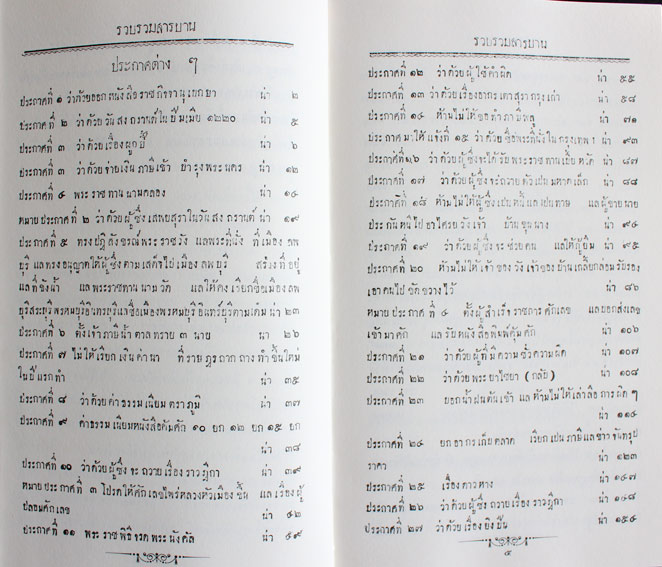 รวบรวมสารบาน
ประกาศต่าง ๆ
ประกาศที่ ๑ ว่าด้วยออกหนังสือราชกิจจานุเบกษา น่า ๒
ประกาศที่ ๒ ว่าด้วยวันสงกรานต์ในปีมเมีย ๑๒๒๐ น่า ๕
ประกาศที่ ๓ ว่าด้วยเรื่องผูกปี้ น่า ๖
ประกาศที่ ๓ ว่าด้วยจ่ายเงินภาษีเข้า บำรุงพระนคร น่า ๑๒
ประกาศที่ ๔ พระราชทานนามคลอง น่า ๑๔
หมายประกาศที่ ๒ ว่าด้วยผู้ซึ่งเสพยสุราในวันสงกรานต์ น่า ๑๙
ประกาศที่ ๕ ทรงปฏิสังขรณ์พระราชวัง แลพระที่นั่ง ที่เมืองลพ
บุรี แลทรงอนุญาตให้ผู้ซึ่งตามเสด็จไปเมืองลพบุรี สร้างที่อยู่
แลที่ขังน้ำ แลพระราชทานนามวัด แลให้คงเรียกชื่อเมืองลพ
บุรีสระบุรีพรหมบุรีอินทรบุรีแลชื่อเมืองพรหมบุรีอินทร์บุรีตามเดิม น่า ๒๓
ประกาศที่ ๖ ตั้งเจ้าภาษีน้ำตาลทราย ๓ นาย น่า ๒๖
ประกาศที่ ๗ ไม่ให้เรียกเงินค่านา ที่ราษฎรถากถางทำขึ้นใหม่
ในปีแรกทำ น่า ๓๕
ประกาศที่ ๘ ว่าด้วยค่าธรรมเนียมตราภูมิ น่า ๓๗
ประกาศที่ ๙ ค่าธรรมเนียมหนังสือคุ้มสัก ๑๐ ยก ๑๒ ยก ๑๕ ยก
น่า ๓๘
ประกาศที่ ๑๐ ว่าด้วยผู้ซึ่งจะถวายเรื่องราวฎีกา น่า ๓๙
หมายประกาศที่ ๓ โปรดให้สักเลขไพร่หลวงหัวเมืองขึ้น แลเรื่องผู้
ปลอมสักเลข น่า ๔๒
ประกาศที่ ๑๑ พระราชพิธีจรดพระนังคัล น่า ๔๙
รวบรวมสารบาน
ประกาศที่ ๑๒ ว่าด้วยผู้ใช้คำผิด น่า ๕๕
ประกาศที่ ๑๓ ว่าด้วยเรื่องอากรเตาสุรากรุงเก่า น่า ๕๘
ประกาศที่ ๑๔ ห้ามไม่ให้ขอทำภาษีพลู น่า ๗๑
ประกาศมาให้แจ้งที่ ๑๕ ว่าด้วยชื่อพระที่นั่งในกรุงเทพฯ น่า ๗๓
ประกาศที่ ๑๖ ว่าด้วยผู้ซึ่งจะได้รับพระราชทานเบี้ยหวัด น่า ๘๗
ประกาศที่ ๑๗ ว่าด้วยผู้ซึ่งจะถวายตัวเปนมหาดเล็ก น่า ๘๘
ประกาศที่ ๑๘ ห้ามไม่ให้ผู้ซึ่งเปนหนี้แลเปนทาษ แลผู้ขายนาย
ประกันหนีไปอาไศรยวังเจ้า บ้านขุนนาง น่า ๙๔
ประกาศที่ ๑๙ ว่าด้วย ผู้ซึ่งจะช่วยคน แลให้กู้ยืม น่า ๙๕
ประกาศที่ ๒๐ ห้ามไม่ให้เจ้าของวังเจ้าของบ้านเกลี้ยกล่อมรับรอง
เอาคนไปขัดขวางไว้ น่า ๘๖
หมายประกาศที่ ๔ ตั้งผู้สำเร็จราชการสักเลข แลยอกส่งเลข
เข้ามาสัก แลรับหนังสือพิมพ์คุ้มสัก น่า ๑๐๖
ประกาศที่ ๒๑ ว่าด้วยผู้ที่มีความชั่วความผิด น่า ๑๐๗
ประกาศที่ ๒๒ ว่าด้วยพระยาไชยา (กลับ) น่า ๑๐๘
ประกาศที่ ๒๓ บอกน้ำฝนต้นเข้า แลห้ามไม่ให้เล่าลือการผิด ๆ
น่า ๑๑๔
ประกาศที่ ๒๔ ยกอากรเก็บตลาด เรียกเปนภาษีแลข่าวจันทรุป
ราคา น่า ๑๒๓
ประกาศที่ ๒๕ เรื่องดาวหาง น่า ๑๔๗
ประกาศที่ ๒๖ ว่าด้วยผู้ซึ่งถวายเรื่องราวฎีกา น่า ๑๔๘
ประกาศที่ ๒๗ ว่าด้วยเรื่องยิงปืน น่า ๑๕๔
๔